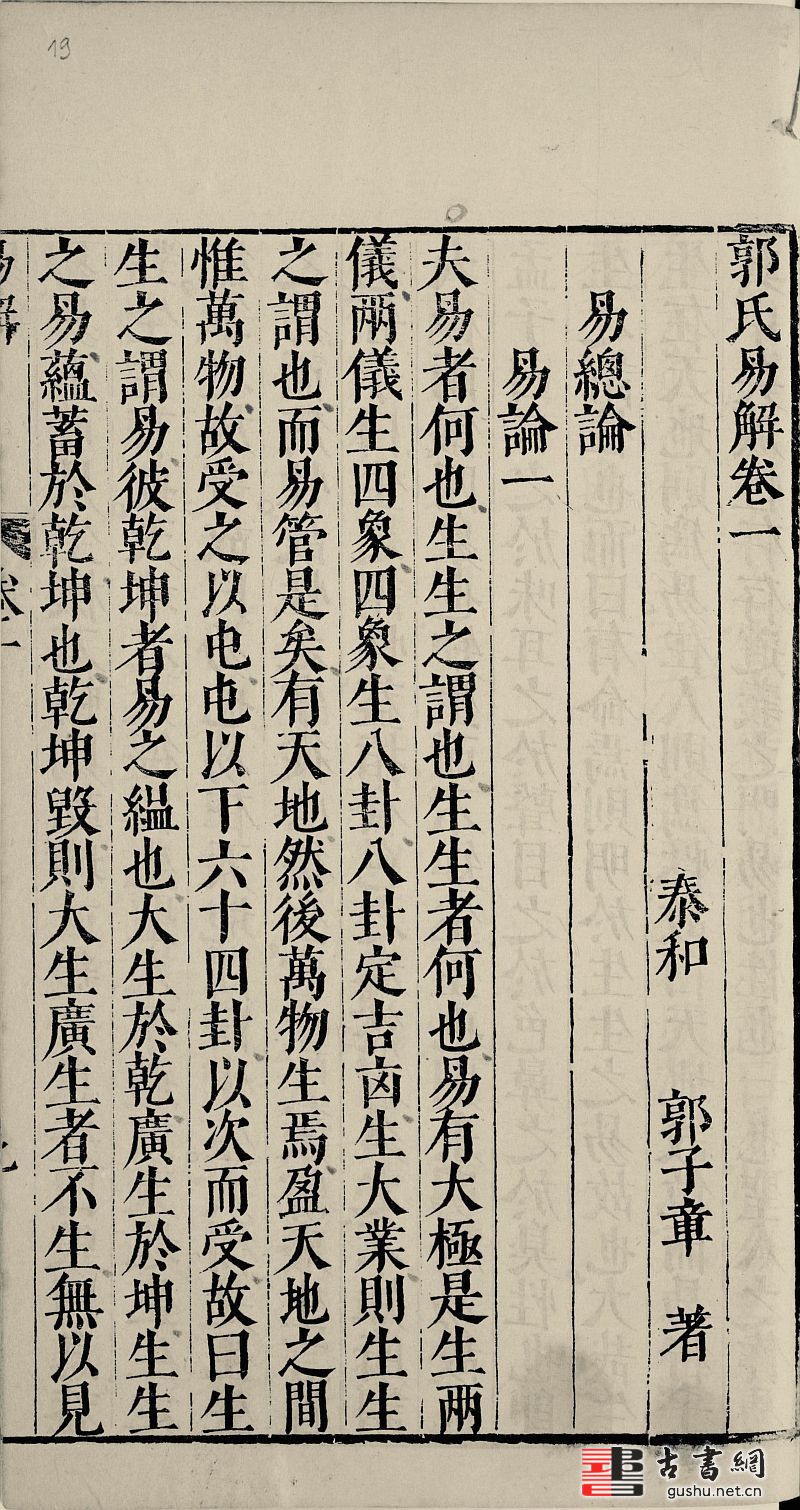 19
郭氏易解卷一
泰和 郭子章 著
易總論
易論一
夫易者何也生生之謂也生生者何也易有大極是生兩
儀兩儀生四象四象生八卦八卦定吉凶生大業則生生
之謂也而易管是矣有天地然後萬物生焉盈天地之間
惟萬物故受之以屯屯以下六十四卦以次而受故曰生
生之謂易彼乾坤者易之縕也大生於乾廣生於坤生生
之易蘊蓄於乾坤也乾坤毀則大生廣生者不生無以見
易解
古書網
gushu.net.cn